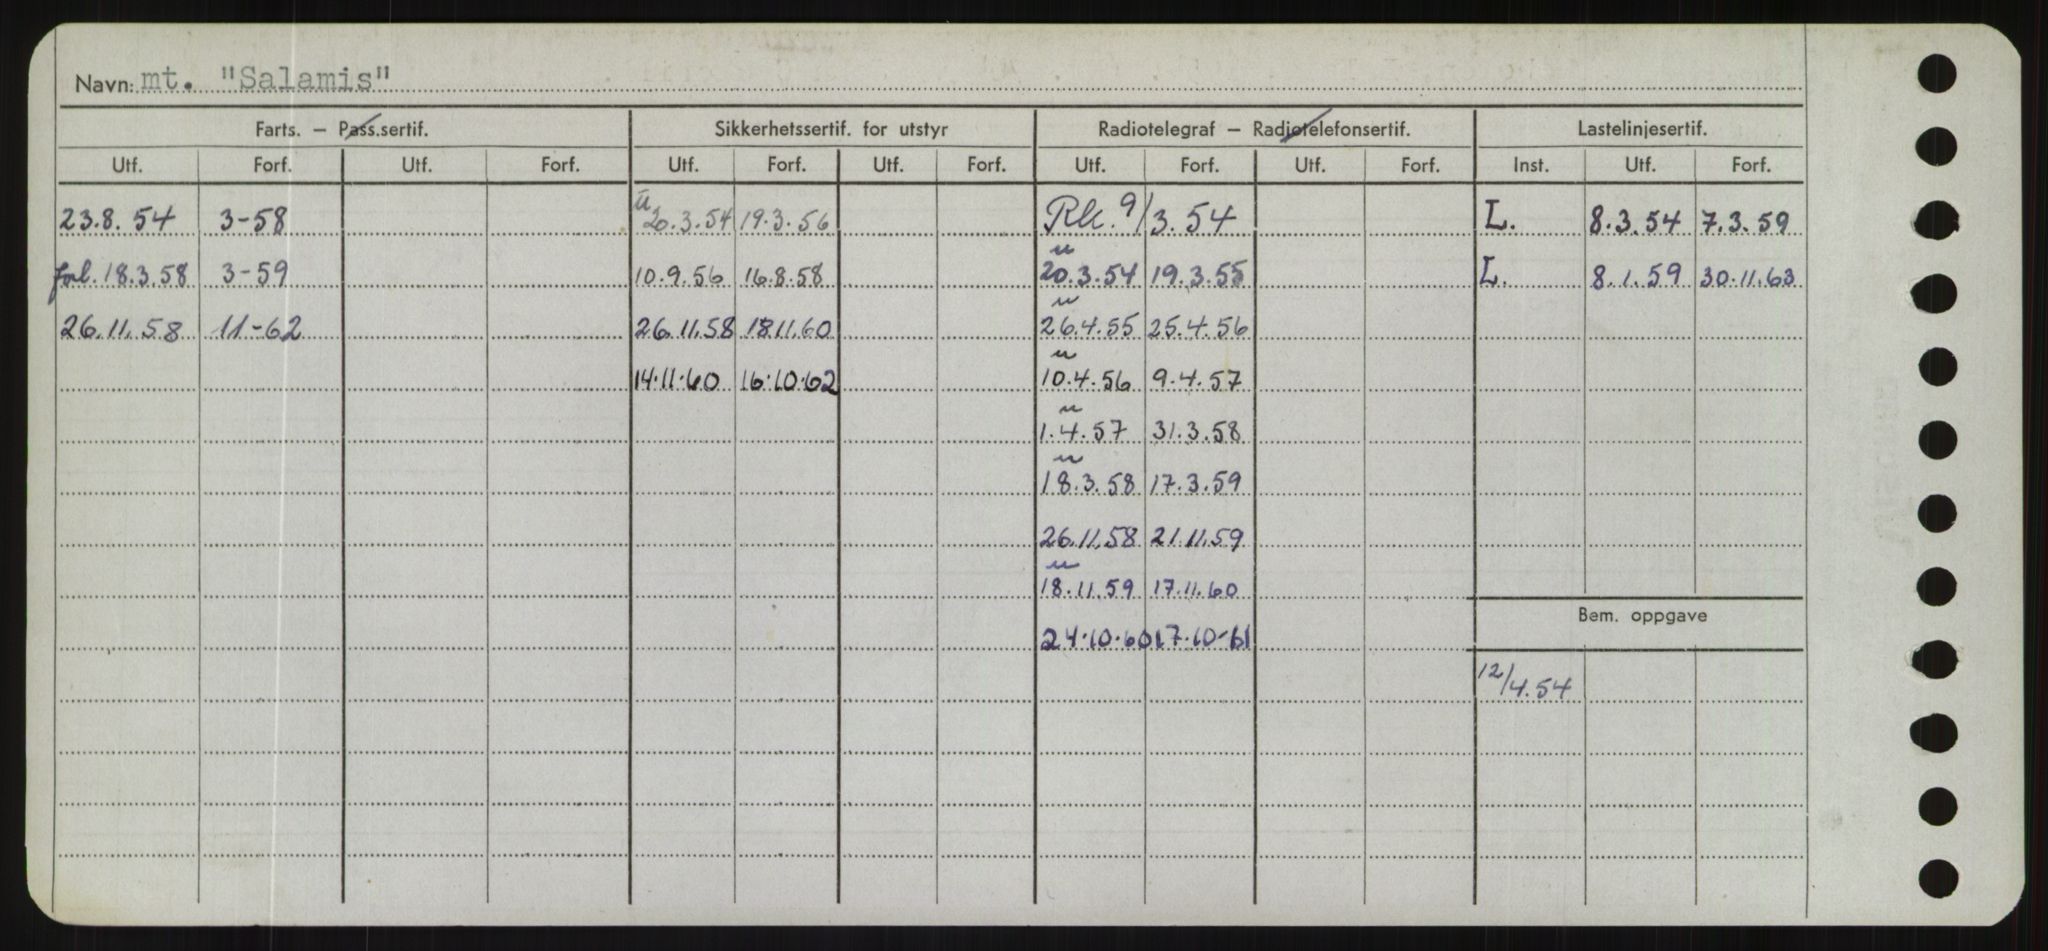 Navn: mt. "Salamis"
Farts. – Pass.sertif. Sikkerhetssertif. for utstyr Radiotelegraf – Radiotelefonsertif. Lastelinjesertif.
Utf. Forf. Utf. Forf. Utf. Forf. Utf. Forf. Utf. Forf. Utf. Forf. Inst. Utf. Forf.
23.8.54 3-58 u 20.3.54 19.3.56 Rk. 9/3.54 L. 8.3.54 7.3.59
forl. 18.3.58 3-59 10.9.56 16.8.58 u 20.3.54 19.3.55 L. 8.1.59 30.11.63
26.11.58 11-62 26.11.58 18.11.60 u 26.4.55 25.4.56
14.11.60 16.10.62 u 10.4.56 9.4.57
u 1.4.57 31.3.58
u 18.3.58 17.3.59
26.11.58 21.11.59
u 18.11.59 17.11.60
Bem. oppgave
24.10.60 17.10-61
12/4.54